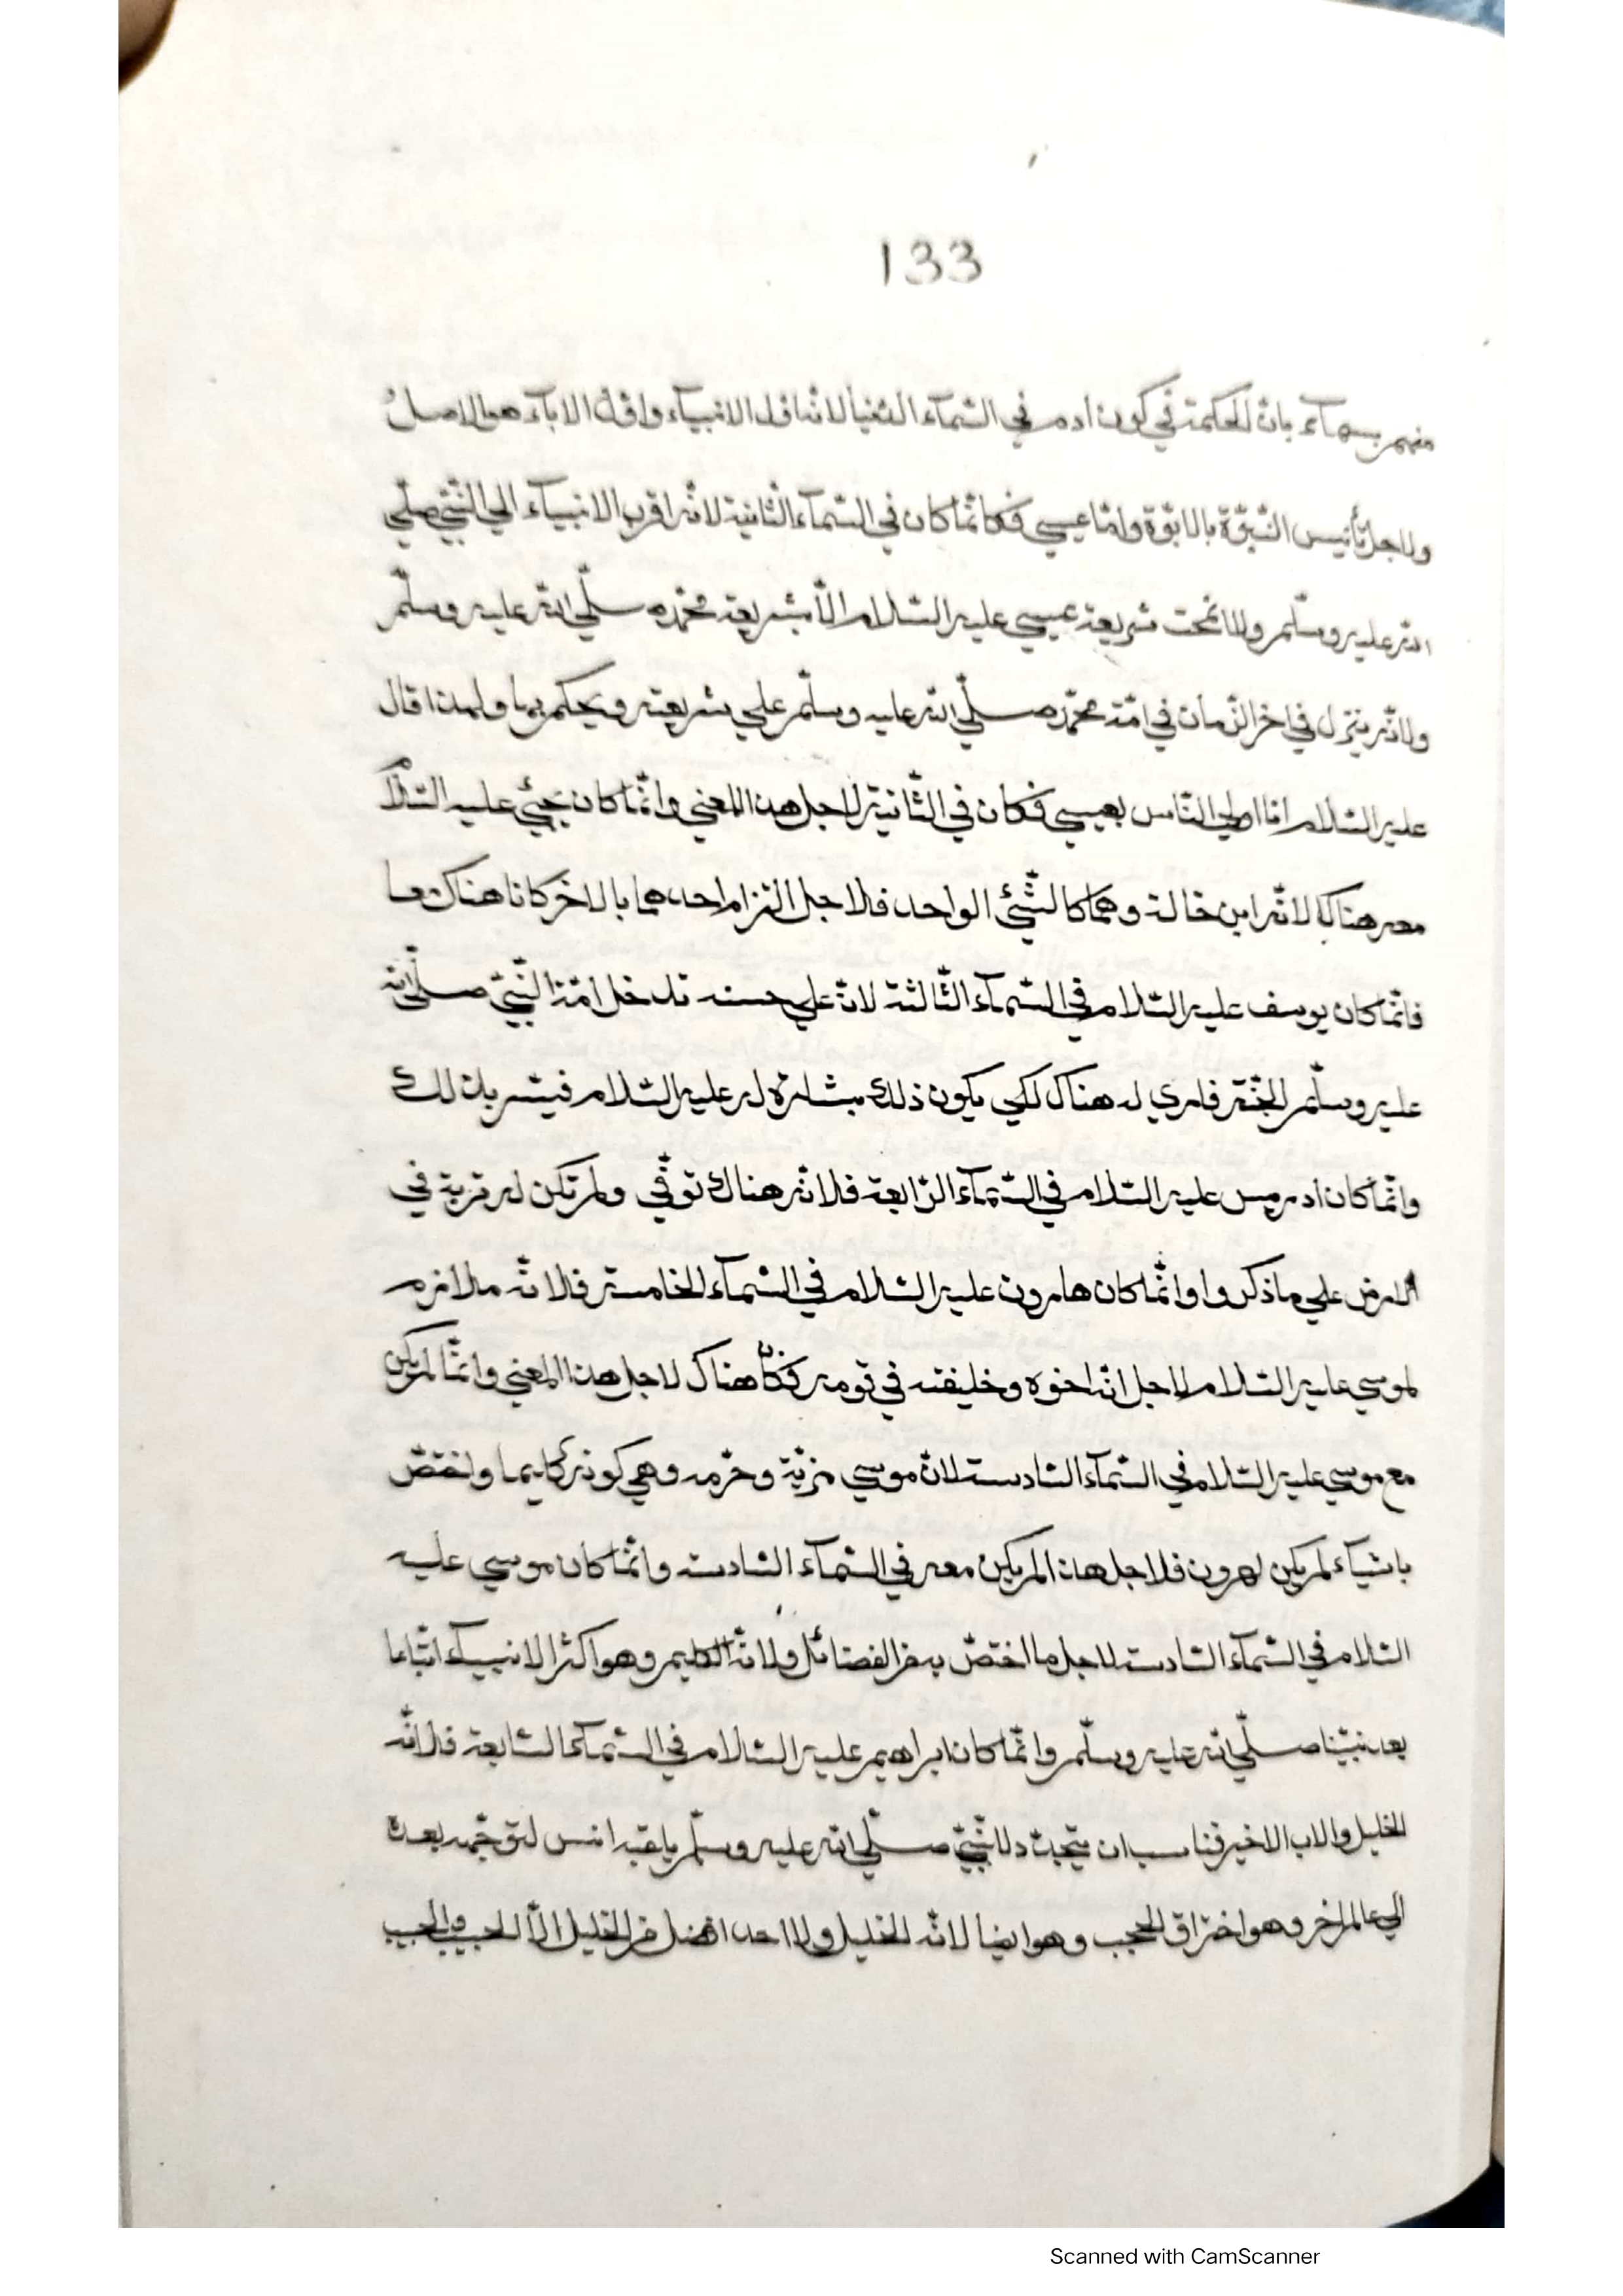 133
منهم بسمآء بانّ الحكمة في كون ادم في السّمآء الدّنيا لانّه اوّل الانبيآء واوّل الابآء هو الاصل
ولاجل تأنيس النّبوّة بالابوّة وامّا عيسي فكانّما كان في السّمآء الثّانية لانّه اقرب الانبيآء الي النّبيّ صلّي
الله عليه وسلّم ولا انمحت شريعة عيسي عليه السّلام الّا بشريعة محمّد صلّي الله عليه وسلّم
ولانّه ينزل في اخر الزّمان في امّة محمّد صلّي الله عليه وسلّم علي شريعته ويحكم بها ولهذا قال
عليه السّلام انا اولي النّاس بعيسي فكان في الثّانية لاجل هذا المعني وانّما كان يحيي عليه السّلام
معه هناك لانّه ابن خالة وهما كالشّئ الواحد فلاجل التزام احدهما بالاخر كانا هناك معا
فانّما كان يوسف عليه السّلام في السّمآء الثّالثة لانّ علي حسنه تدخل امّة النّبيّ صلّي الله
عليه وسلّم الجنّة فاري له هناك لكي يكون ذلك بشارة له عليه السّلام فيسّر بذلك
وانّما كان ادريس عليه السّلام في السّمآء الرّابعة فلانّه هناك توفّي ولم تكن له تربة في
الارض علي ما ذكروا وانّما كان هارون عليه السّلام في السّمآء الخامسة فلانّه ملازم
لموسي عليه السّلام لاجل انّه اخوه وخليفته في قومه فكان هناك لاجل هذا المعني وانّما لم يكن
مع موسي عليه السّلام في السّمآء السّادسة لانّ موسي مزيّة وحرمه وهي كونه كليما واختصّ
باشيآء لم يكن لهرون فلاجل هذا لم يكن معه في السّمآء السّادسة وانّما كان موسي عليه
السّلام في السّمآء السّادسة لاجل ما اختصّ به من الفضائل ولانّه الكليم وهو اكثر الانبيآء اتّباعا
بعد نبيّنا صلّي الله عليه وسلّم وانّما كان ابراهيم عليه السّلام في السّمآء السّابعة فلانّه
الخليل والاب الاخير فناسب ان يتجدّد للنّبيّ صلّي الله عليه وسلّم انس لتوجّهه بعده
الي عالم اخر وهو اختراق الحجب وهو ايضا لانّه الخليل ولا احد افضل من الخليل الّا الحبيب والحبيب
Scanned with CamScanner